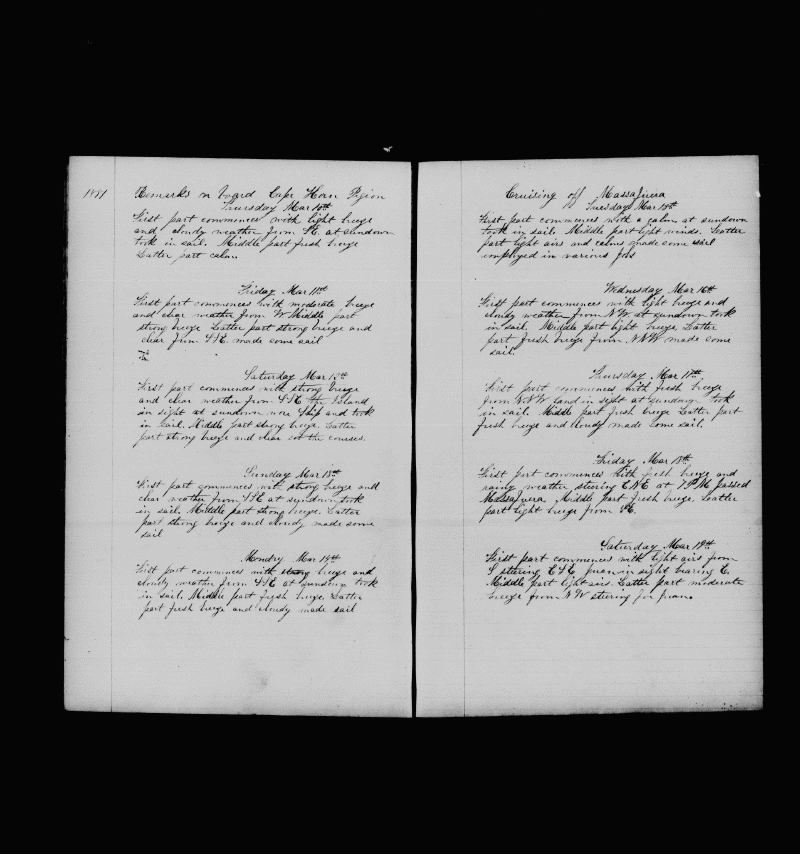 1881
Remarks on board Cape Horn Pigeon
Thursday Mar 10th
First part commences with light breeze
and cloudy weather from SE. at sundown
took in sail. Middle part fresh breeze
Latter part calm
Friday Mar 11th
First part commences with moderate breeze
and clear weather from W Middle part
strong breeze Latter part strong breeze and
clear from SSE. made some sail
Saturday Mar 12th
First part commences with strong breeze
and clear weather from SSE the Island
in sight at sundown wore Ship and took
in sail. Middle part strong breeze. Latter
part strong breeze and clear set the courses.
Sunday Mar 13th
First part commences with strong breeze and
clear weather from SSE at sundown took
in sail. Middle part strong breeze. Latter
part strong breeze and cloudy made some
sail
Monday Mar 14th
First part commences with strong breeze and
cloudy weather from SSE at sundown took
in sail. Middle part fresh breeze. Latter
part fresh breeze and cloudy made sail
Cruising off Massafuera
Tuesday Mar 15th
First part commences with a calm, at sundown
took in sail. Middle part light winds. Latter
part light airs and calms made some sail
employed in various jobs
Wednesday Mar 16th
First part commences with light breeze and
cloudy weather from NW. at sundown took
in sail. Middle part light breeze, Latter
part fresh breeze from NNW. made some
sail.
Thursday Mar 17th
First part commences with fresh breeze
from NNW land in sight at sundown took
in sail. Middle part fresh breeze Latter part
fresh breeze and cloudy made some sail.
Friday Mar 18th
First part commences with fresh breeze and
rainy weather stering ENE at 7 PM passed
Massafuera Middle part fresh breeze. Latter
part light breeze from SE.
Saturday Mar 19th
First part commences with light airs from
S stering ESE Juan in sight bearing E.
Middle part light airs. Latter part moderate
breeze from NW stering for Juan.